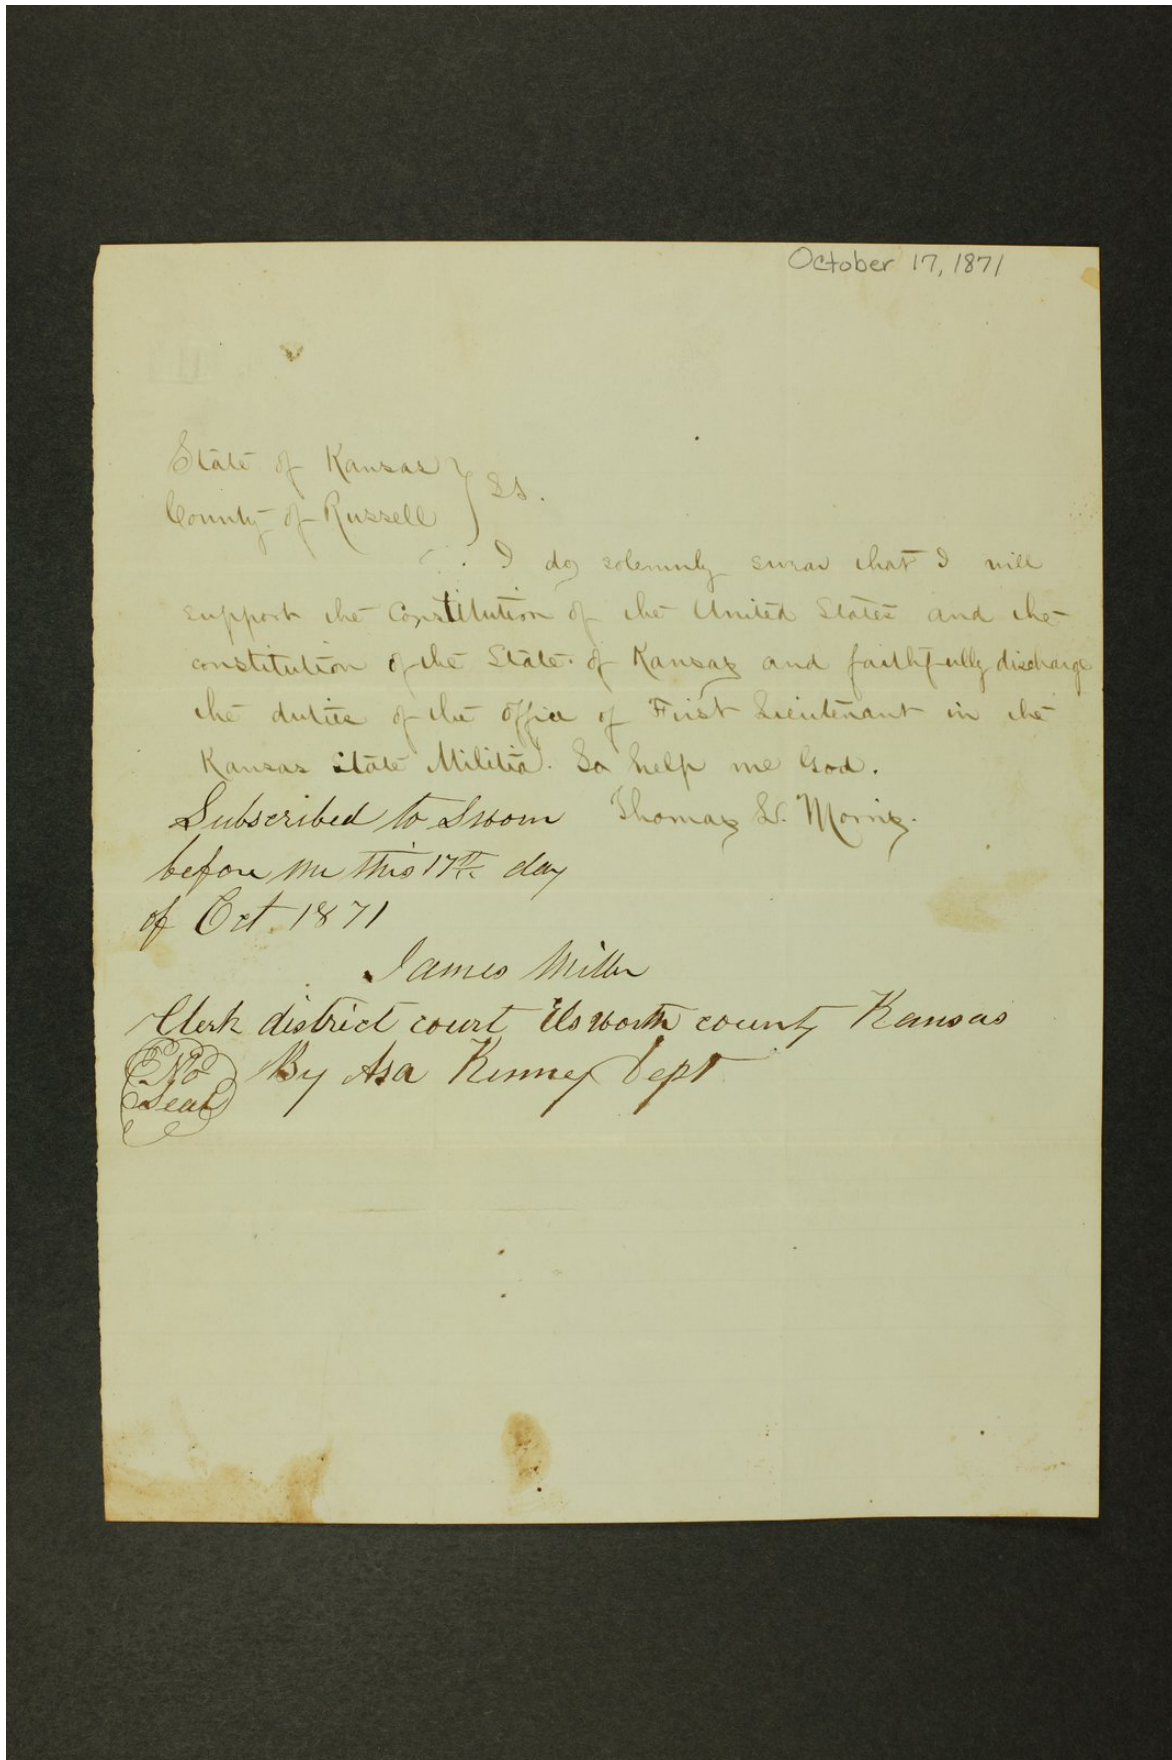 October 17, 1871
State of Kansas } SS.
County of Russell
I do solemnly swear that I will
support the Constitution of the United States and the
constitution of the State of Kansas and faithfully discharge
the duties of the office of First Lieutenant in the
Kansas State Militia. So help me God.
Thomas L. Morris.
Subscribed to Sworn
before me this 17th day
of Oct. 1871
James Miller
Clerk district court Elsworth county Kansas
No
Seal
By Asa Kinney Dept